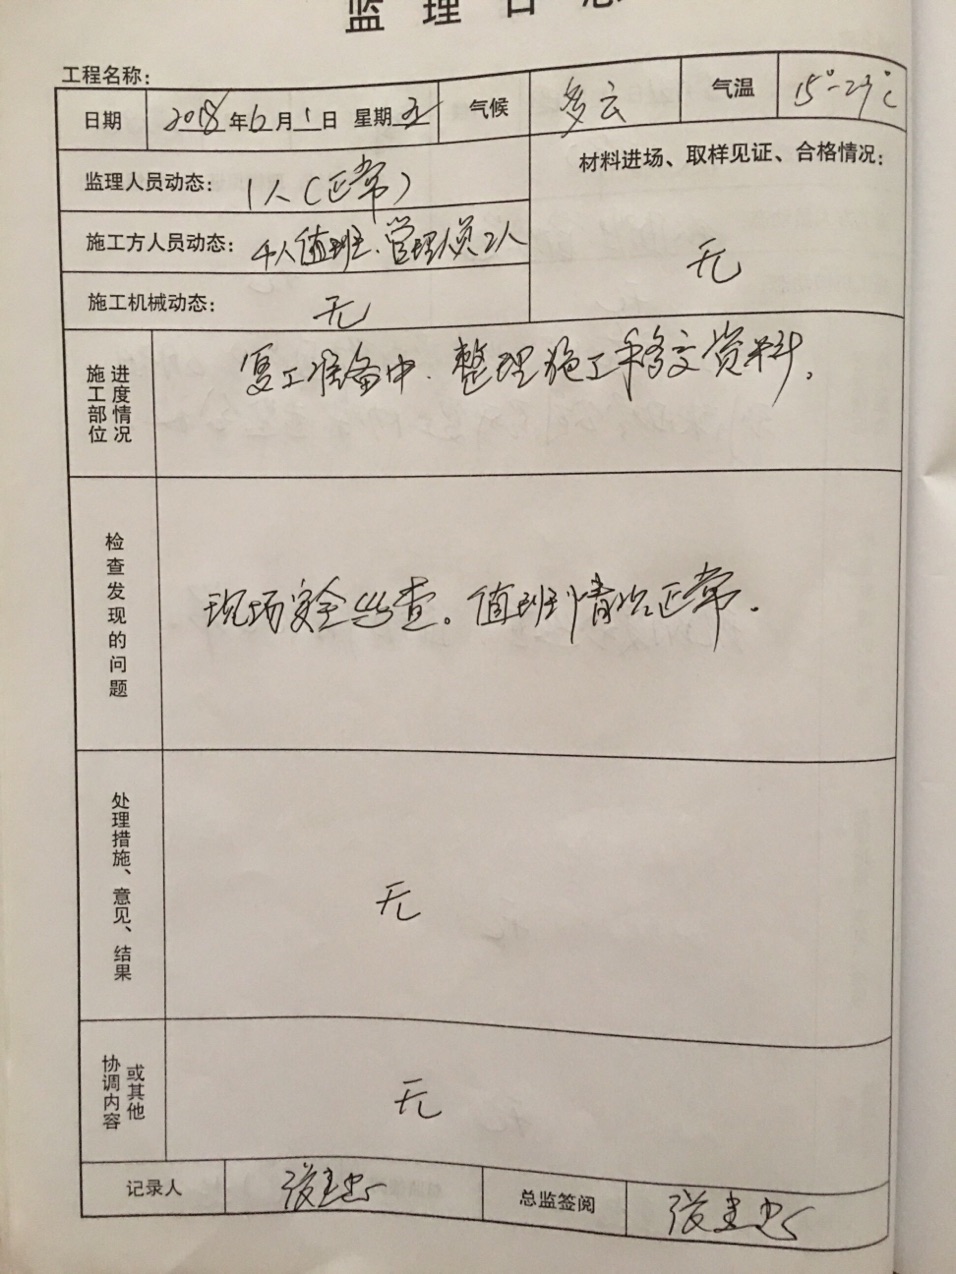 监理日志
工程名称：
日期 2018年6月1日 星期五 气候 多云 气温 15°-29℃
监理人员动态： 1人（正常） 材料进场、取样见证、合格情况：
施工方人员动态： 4人值班、管理人员2人 无
施工机械动态： 无
施工部位进度情况 复工准备中、整理施工移交资料。
检查发现的问题 现场安全巡查。值班情况正常。
处理措施、意见、结果 无
协调内容或其他 无
记录人 张圭忠 总监签阅 张圭忠